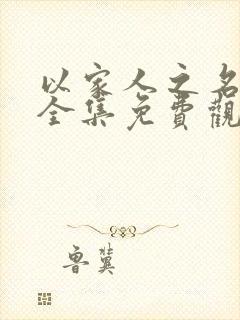 以家人之名
全集免費觀
鲁冀